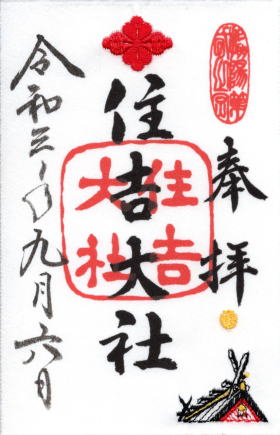 奉拝
住吉大社
住吉大社
令和三年九月六日